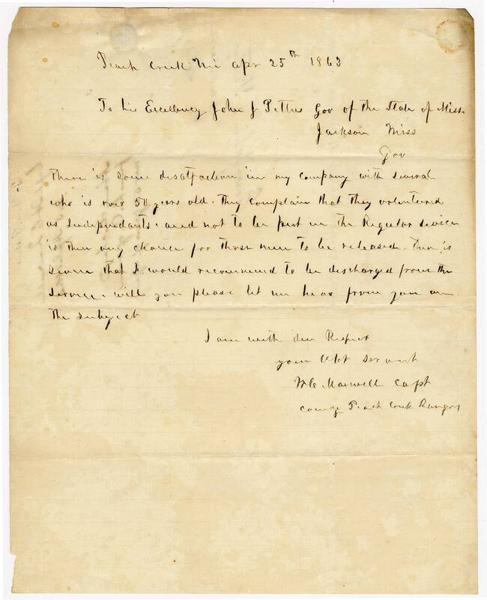 Peach Creek Mi Apr 25th 1863
To his Excellency John J Pettus Gov of the State of Miss.
Jackson Miss
Gov
there is some disatfaction in my company with several
who is over 50 years old. They complain that they volunteered
as Independants. and not to be put in the Regular Service
is ther any chance for those men to be released. ther is
seven that I would recommend to be discharged from the
Service. will you please let me hear from you on
the subject
I am with due Respect
your Obt servant
Maxwell Capt
Peach Creek Rangers